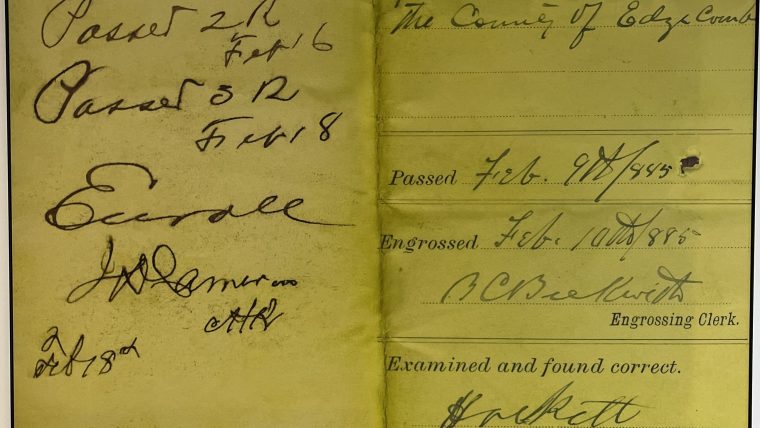 Passed 2 R
Feb 16
Passed 3 R
Feb 18
Enroll
Feb 18th
The County of Edgecomb
Passed Feb. 9th/885
Engrossed Feb. 10th/885
B C Beckwith
Engrossing Clerk.
Examined and found correct.
Hackett